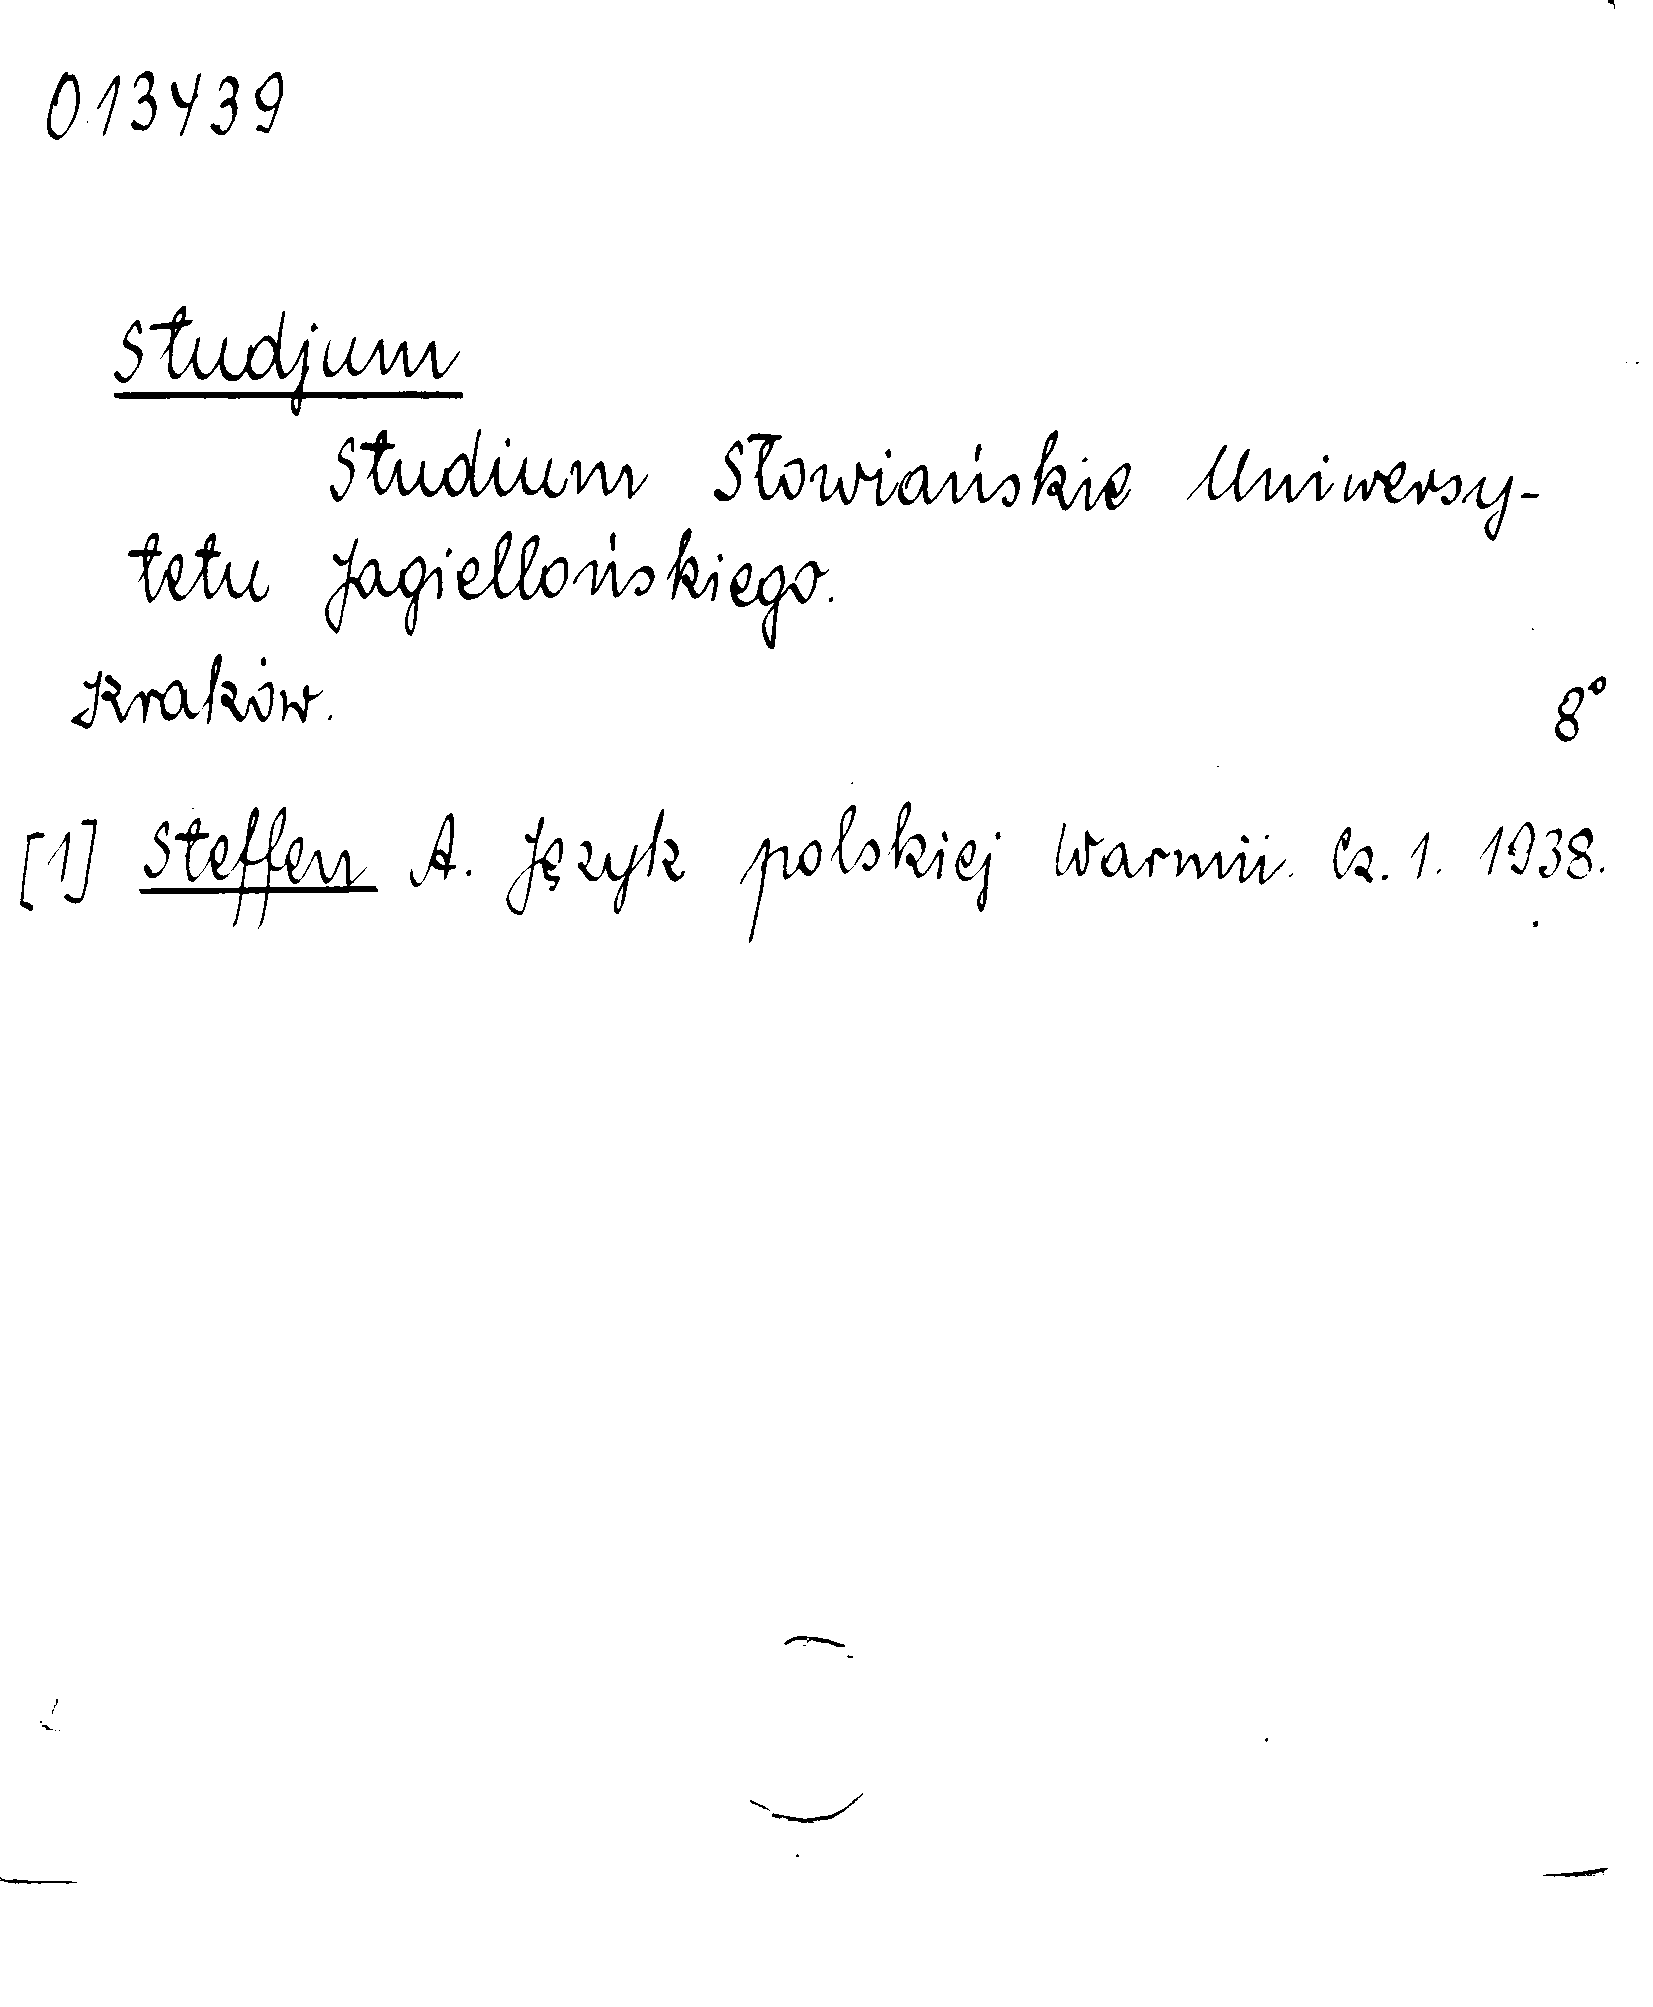 013439
Studjum
Studium Słowiańskie Uniwersy-
tetu Jagiellońskiego.
Kraków. 8°
[1] Steffen A. Język polskiej Warmii. Cz. 1. 1938.